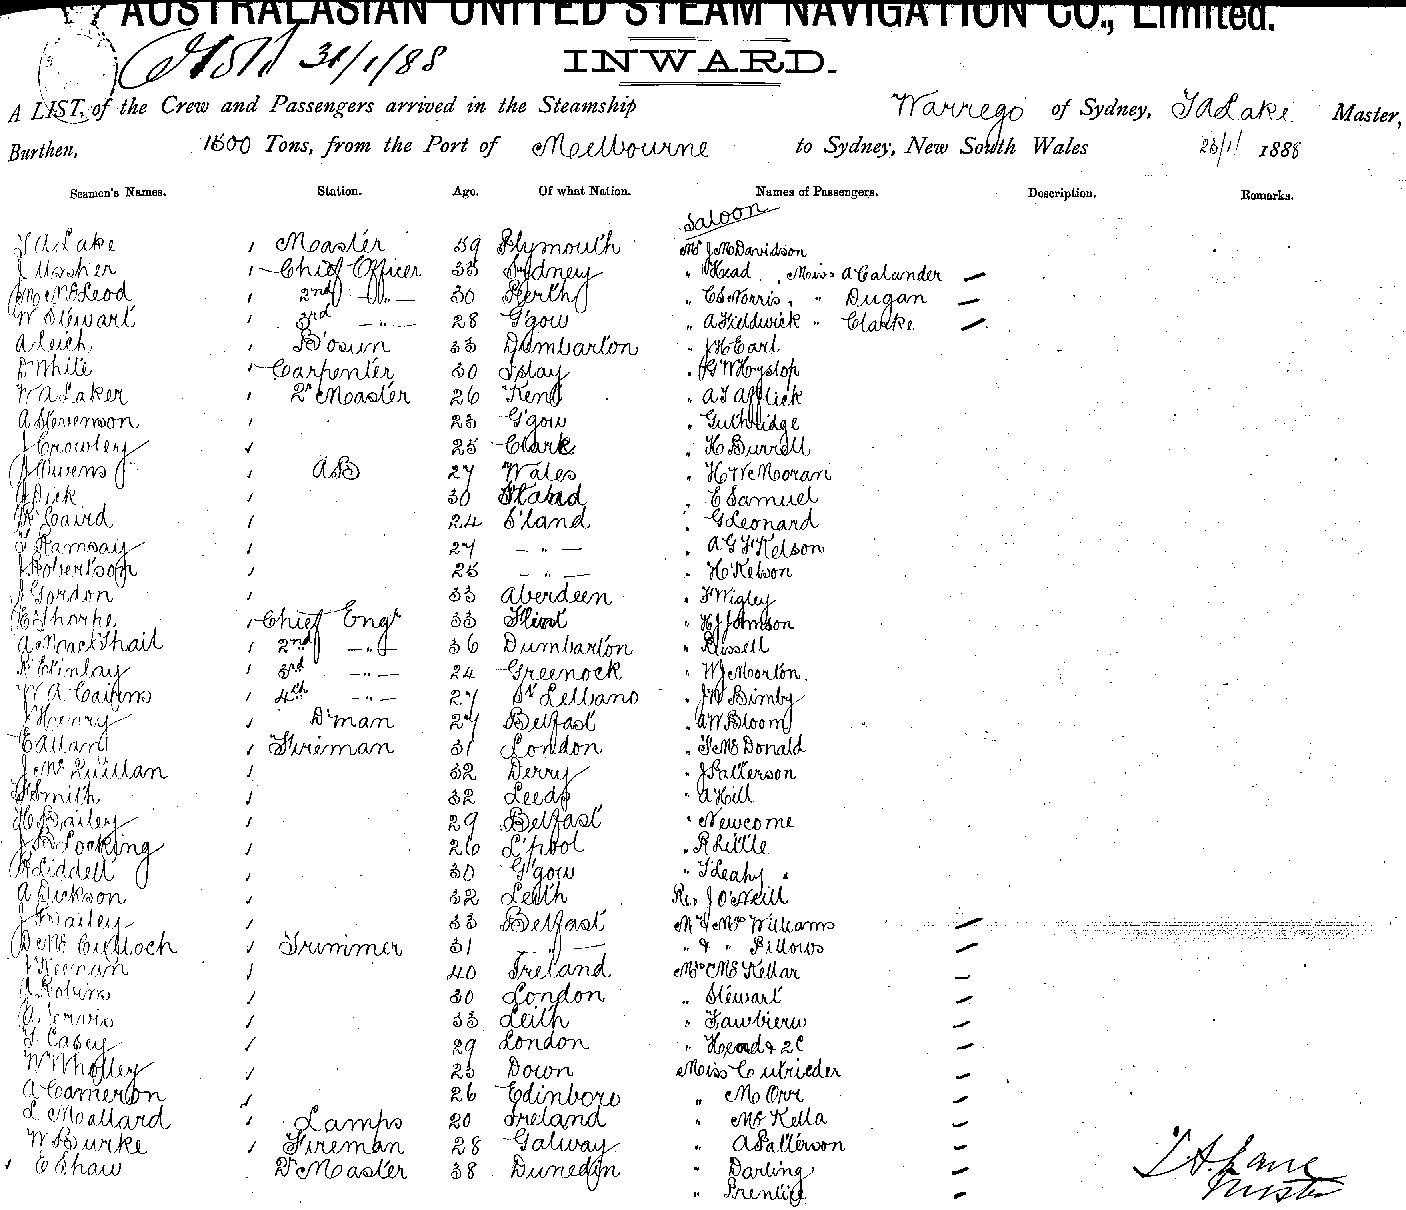 AUSTRALASIAN UNITED STEAM NAVIGATION CO., Limited.
31/1/88 INWARD.
A LIST, of the Crew and Passengers arrived in the Steamship Warrego of Sydney, T A Lake Master,
Burthen, 1500 Tons, from the Port of Melbourne to Sydney, New South Wales 1888
Seamen's Names. Station. Age. Of what Nation. Names of Passengers. Description. Remarks.
Saloon
T A Lake Master 39 Plymouth Mr J McDavidson
J Ussher Chief Officer 35 Sydney " Head Miss A Calander —
McLeod 2nd — " — 30 Perth " Norris, " Dugan —
W Stewart 3rd — " — 28 G'gow " A Fieldwick " Clarke —
A Leich Bosun 33 Dumbarton " J H Earl
White Carpenter 30 Islay " G W Hyslop
W A Laker Master 26 Kent " A T Afflick
A Stevenson 23 G'gow " Guthridge
J Crowley 25 Clark " H Burrell
J Owens AB 27 Wales " H W Moran
J Dick 30 " E Samuel
Caird 24 S'land " G Leonard
Ramsay 27 — " — " A G F Kelson
J Robertson 25 — " — " H Kelson
J Gordon 33 Aberdeen " F Wigley
E Thorke Chief Engr 33 Flint " H J Johnson
A MacPhail 2nd — " — 36 Dumbarton " Russell
Finlay 3rd — " — 24 Greenock " W J Morton
W A Cairns 4th — " — 27 " J W Bimby
J Henry D'man 27 Belfast " A W Bloom
E Allan Fireman 31 London " T McDonald
J McQuillan 32 Derry " J Patterson
Smith 32 Leeds " A Hill
H Bailey 29 Belfast " Newcome
J B Pocking 26 L'pool " R Little
R Liddell 30 G'gow " T Leahy
A Dickson 32 Leith Rev J O'Neill
J Bailey 33 Belfast Mr & Mrs Williams —
D McCulloch Trimmer 31 — " — " & " Pillows —
J Keenan 40 Ireland Mrs McKellar —
A Robins 30 London " Stewart —
A Jervis 33 Leith " —
T Casey 29 London " Head & 2C —
W Wholley 25 Down Miss —
A Cameron 26 Edinboro " M Orr —
L Mallard Lamps 20 Ireland " McKella —
W Burke Fireman 28 Galway " A Patterson —
E Shaw Master 38 Dunedin " Darling —
" Prentice —